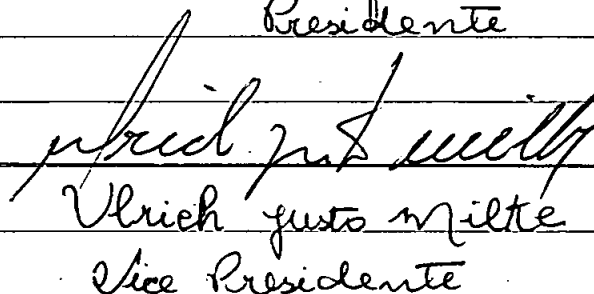 Presidente
Ulrich Justo Milke
Vice Presidente